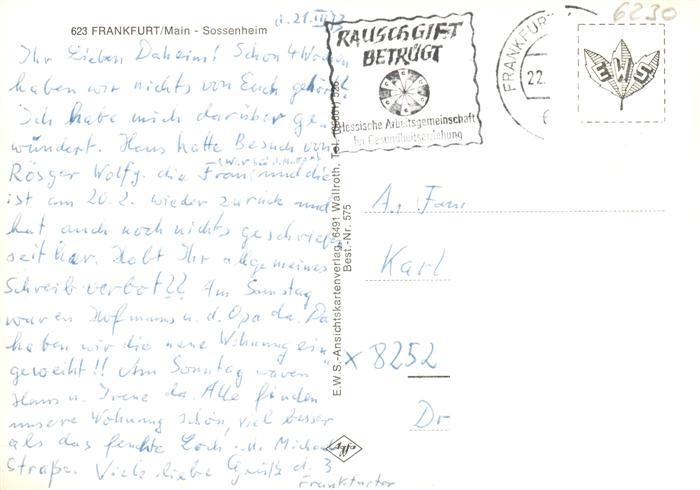 623 FRANKFURT/Main - Sossenheim
21.III.72
6230
Ihr Lieben Daheim! Schon 4 Wochen
haben wir nichts von Euch gehört
Ich habe mich darüber ge
wundert. Hans hatte Besuch von
Rösger Wolfg. die Frau und die
ist am 20.2. wieder zurück und
hat auch noch nichts geschrieben
seither. Habt Ihr allgemeines
Schreibverbot?? Am Samstag
waren Hofmanns u. d. Opa da. Da
haben wir die neue Wohnung ein
geweiht!! Am Sonntag waren
Hans u. Irene da. Alle finden
unsere Wohnung schön, viel besser
als das feuchte Loch i. d.
Straße. Viele liebe Grüße d. 3
Frankfurter
E.W.S.-Ansichtskartenverlag, 6491 Wallroth, Tel. (06661) 528
Best.-Nr. 575
RAUSCHGIFT
BETRÜGT
Hessische Arbeitsgemeinschaft
für Gesundheitserziehung
FRANKFURT
22.
6
EWS
An Fam
Karl
x 8252
Dr
Agfa